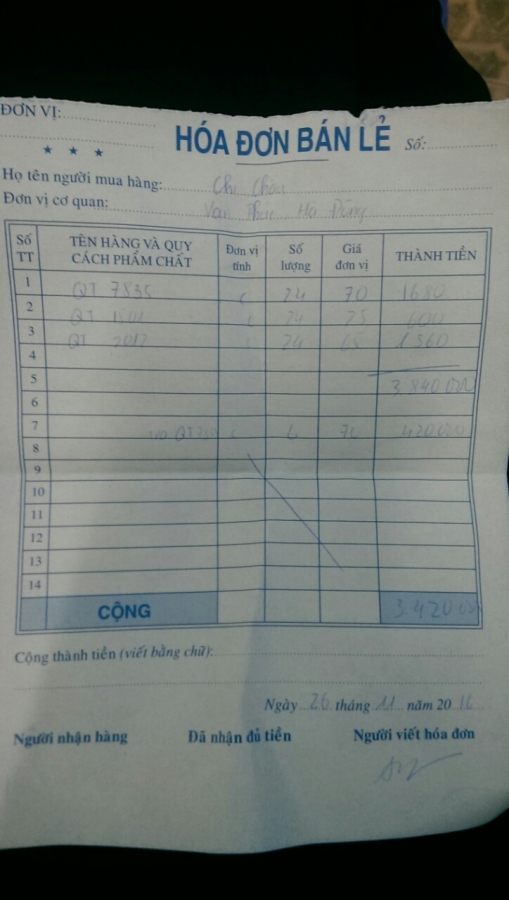 ĐƠN VỊ:
★ ★ ★
HÓA ĐƠN BÁN LẺ Số:
Họ tên người mua hàng: Chị Châu
Đơn vị cơ quan: Vạn Phúc Hà Đông
Số TT TÊN HÀNG VÀ QUY CÁCH PHẨM CHẤT Đơn vị tính Số lượng Giá đơn vị THÀNH TIỀN
1 QT 7535 c 24 70 1680
2 QT c 24 25 600
3 QT 2017 c 24 65 1560
4
5 3840 000
6
7 c 6 70 420 000
8
9
10
11
12
13
14
CỘNG 3420 000
Cộng thành tiền (viết bằng chữ):
Ngày 26 tháng 11 năm 2016
Người nhận hàng Đã nhận đủ tiền Người viết hóa đơn